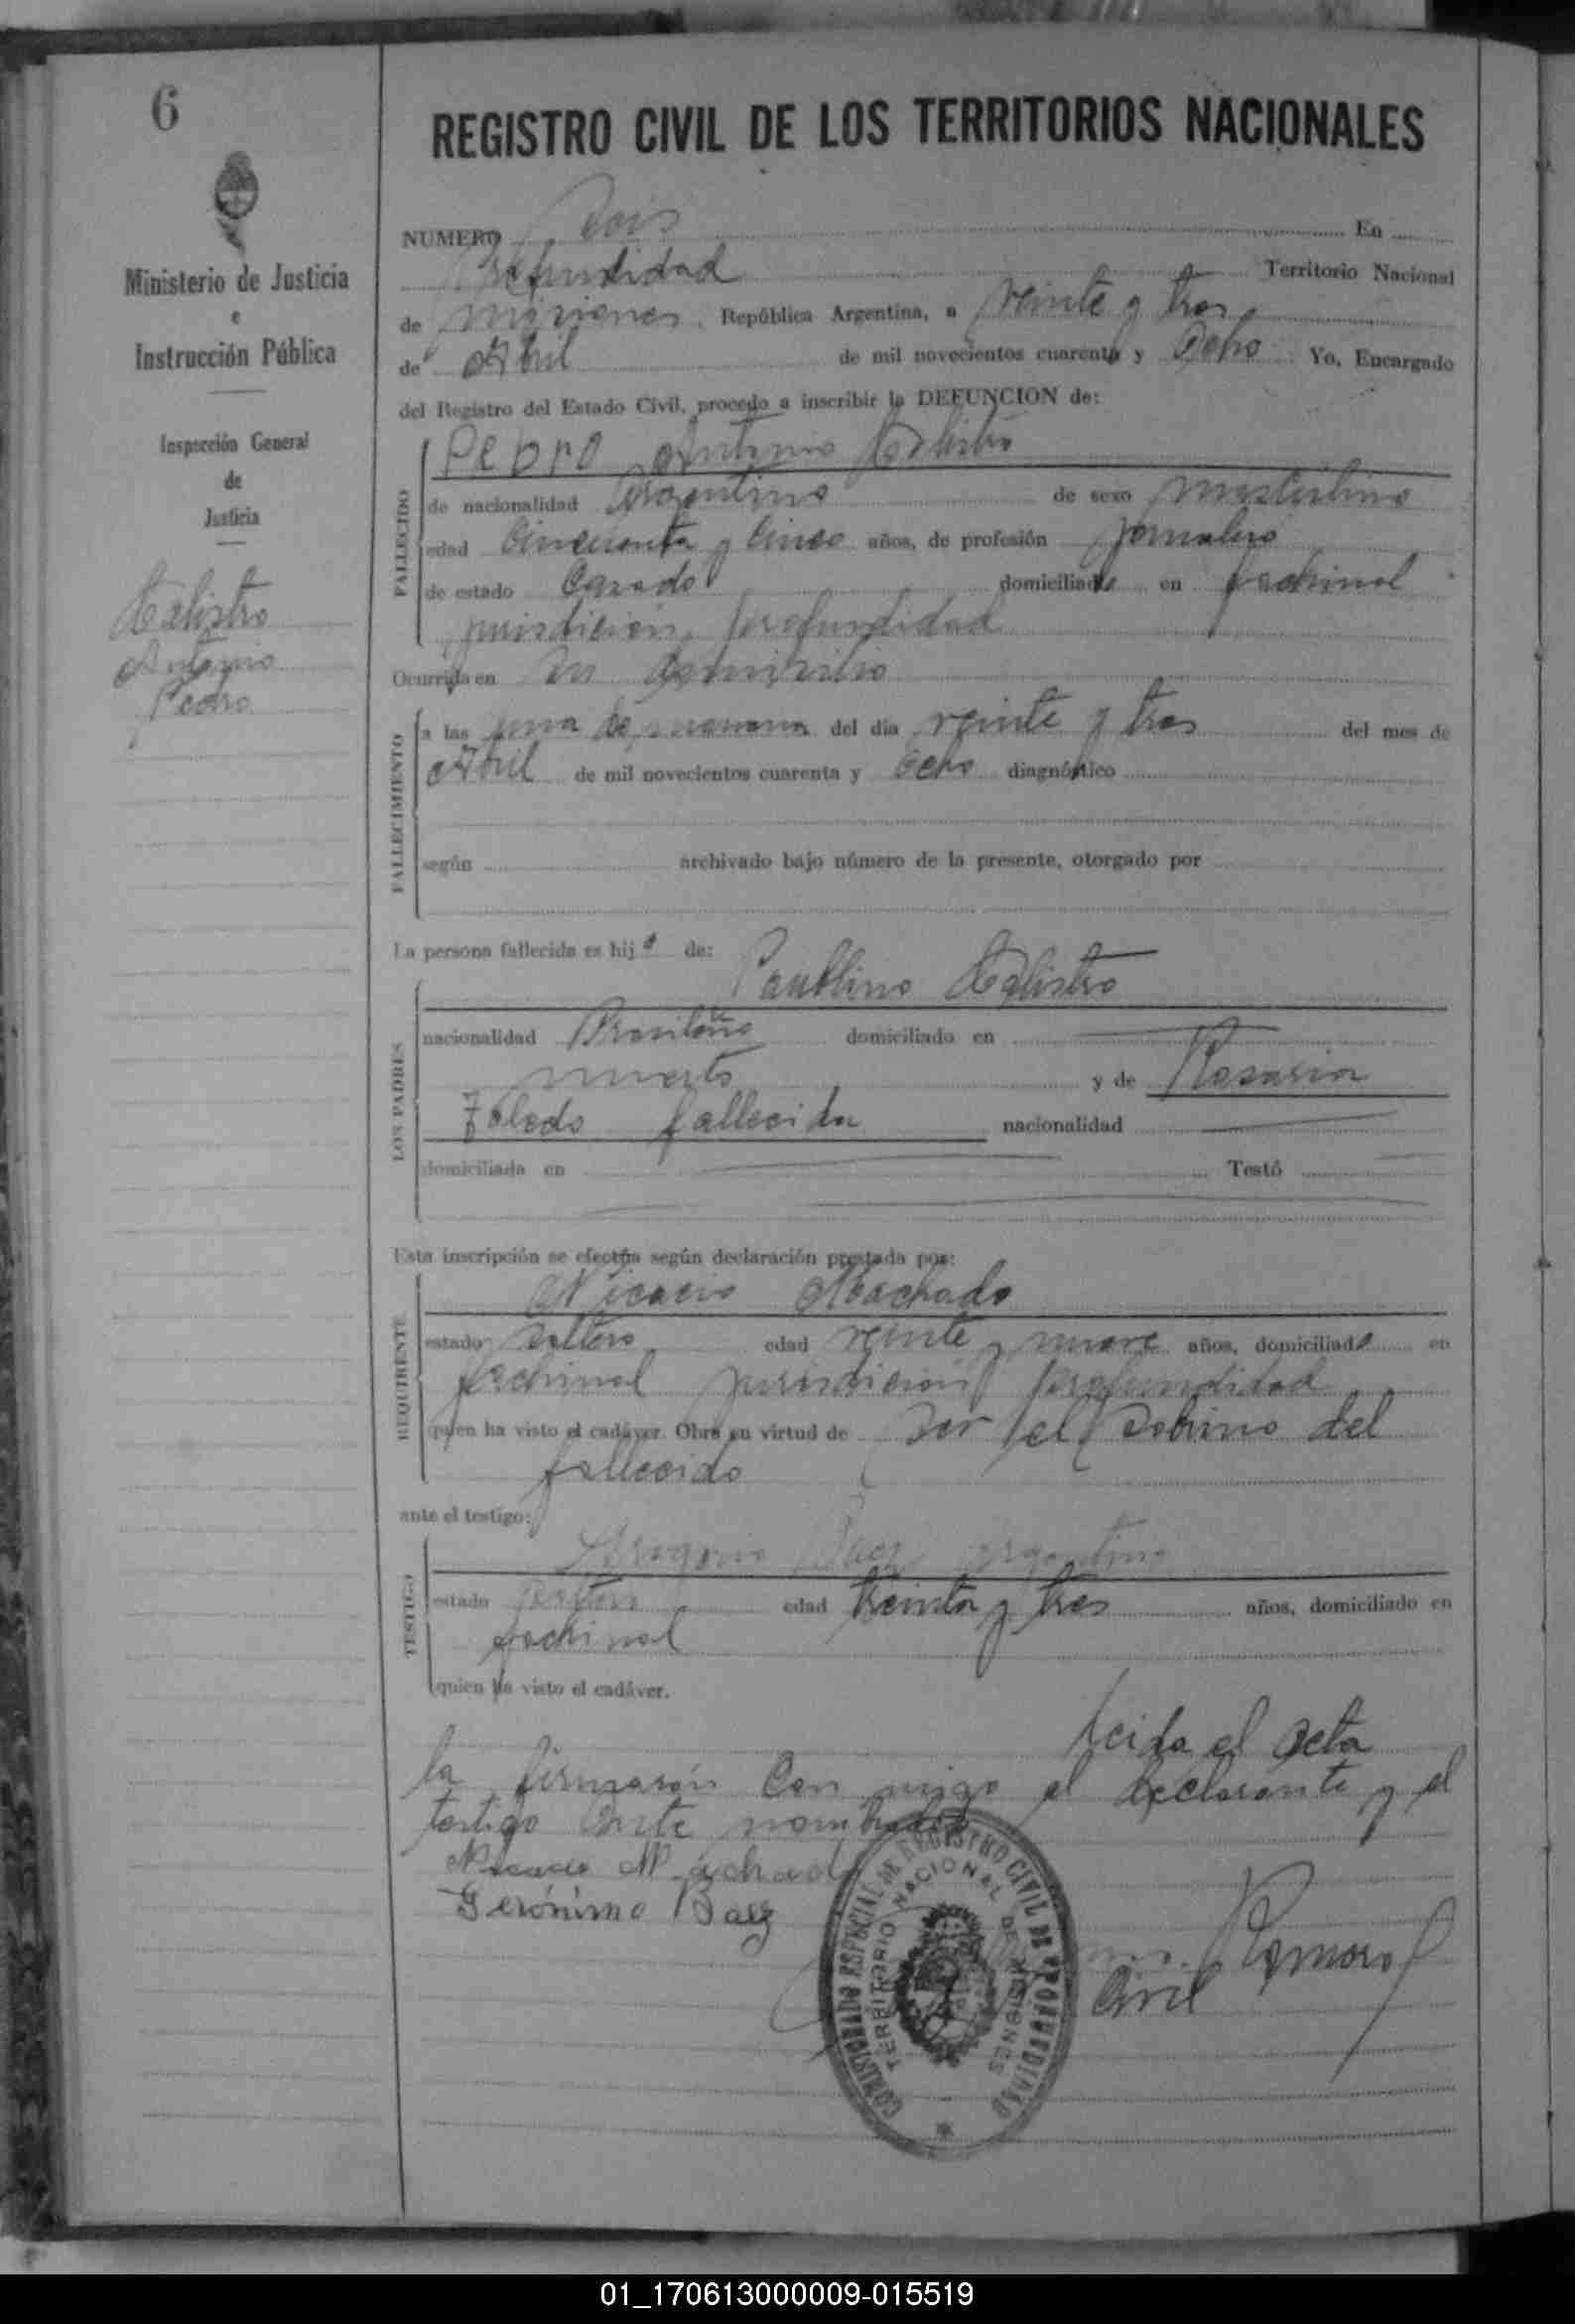 6
REGISTRO CIVIL DE LOS TERRITORIOS NACIONALES
Ministerio de Justicia
e
Instrucción Pública
Inspección General
de
Justicia
Calistro
Antonio
Pedro
NUMERO Dois En
Profundidad Territorio Nacional
de Misiones, República Argentina, a veinte y tres
de Abril de mil novecientos cuarenta y Ocho Yo, Encargado
del Registro del Estado Civil, procedo a inscribir la DEFUNCION de:
FALLECIDO
Pedro Antonio Calistro
de nacionalidad Argentino de sexo masculino
edad Cincuenta y Cinco años, de profesión jornalero
de estado Casado domiciliado en fachinal
jurisdicion, profundidad
Ocurrida en su domicilio
FALLECIMIENTO
a las una de mañana del día veinte y tres del mes de
Abril de mil novecientos cuarenta y Ocho diagnóstico
según archivado bajo número de la presente, otorgado por
La persona fallecida es hijo de:
LOS PADRES
Paublino Calistro
nacionalidad Brasileño domiciliado en
muerto y de Rosaria
Toledo fallecida nacionalidad
domiciliada en Testó
Esta inscripción se efectúa según declaración prestada por:
REQUIRENTE
Nicacio Machado
estado soltero edad veinte y nueve años, domiciliado en
fachinal jurisdicion profundidad
quien ha visto el cadáver. Obra en virtud de ser el sobrino del
fallecido
ante el testigo:
TESTIGO
Baez argentino
estado edad treinta y tres años, domiciliado en
fachinal
quien ha visto el cadáver.
Leida el acta
la firmarón Con migo el declarante y el
testigo ante nombrados
Nicacio Machado
Gerónimo Baez
Romero
Civil
COMISIONADO ESPECIAL DE REGISTRO CIVIL DE PROFUNDIDAD
TERRITORIO NACIONAL DE MISIONES
01_170613000009-015519